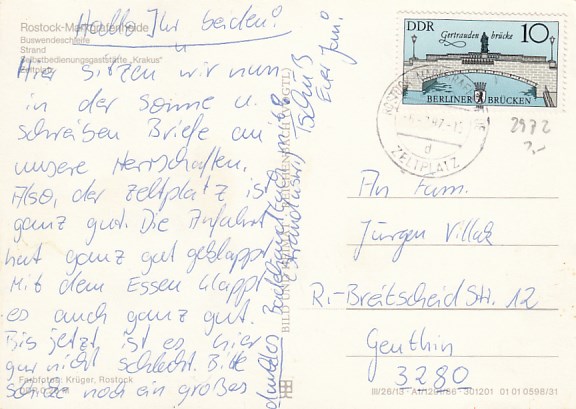 Hallo Ihr beiden!
Rostock-Markgrafenheide
Buswendeschleife
Strand
Selbstbedienungsgaststätte "Krakus"
Zeltplatz
Hier sitzen wir nun
in der Sonne u.
schreiben Briefe an
unsere Herrschaften.
Also, der Zeltplatz ist
ganz gut. Die Anfahrt
hat ganz gut geklappt.
Mit dem Essen klappt
es auch ganz gut.
Bis jetzt ist es hier
gar nicht schlecht. Bitte
noch ein großes
dunkles
Tschüß
Euer Jan!
Farbfotos: Krüger, Rostock
BILD UND HEIMAT REICHENBACH (VOGTL)
DDR
10
Gertraudenbrücke
BERLINER BRÜCKEN
ZELTPLATZ
d
2972
An Fam.
Jürgen
R.-Breitscheid Str. 12
Genthin
3280
III/26/13
301201
01 01 0598/31